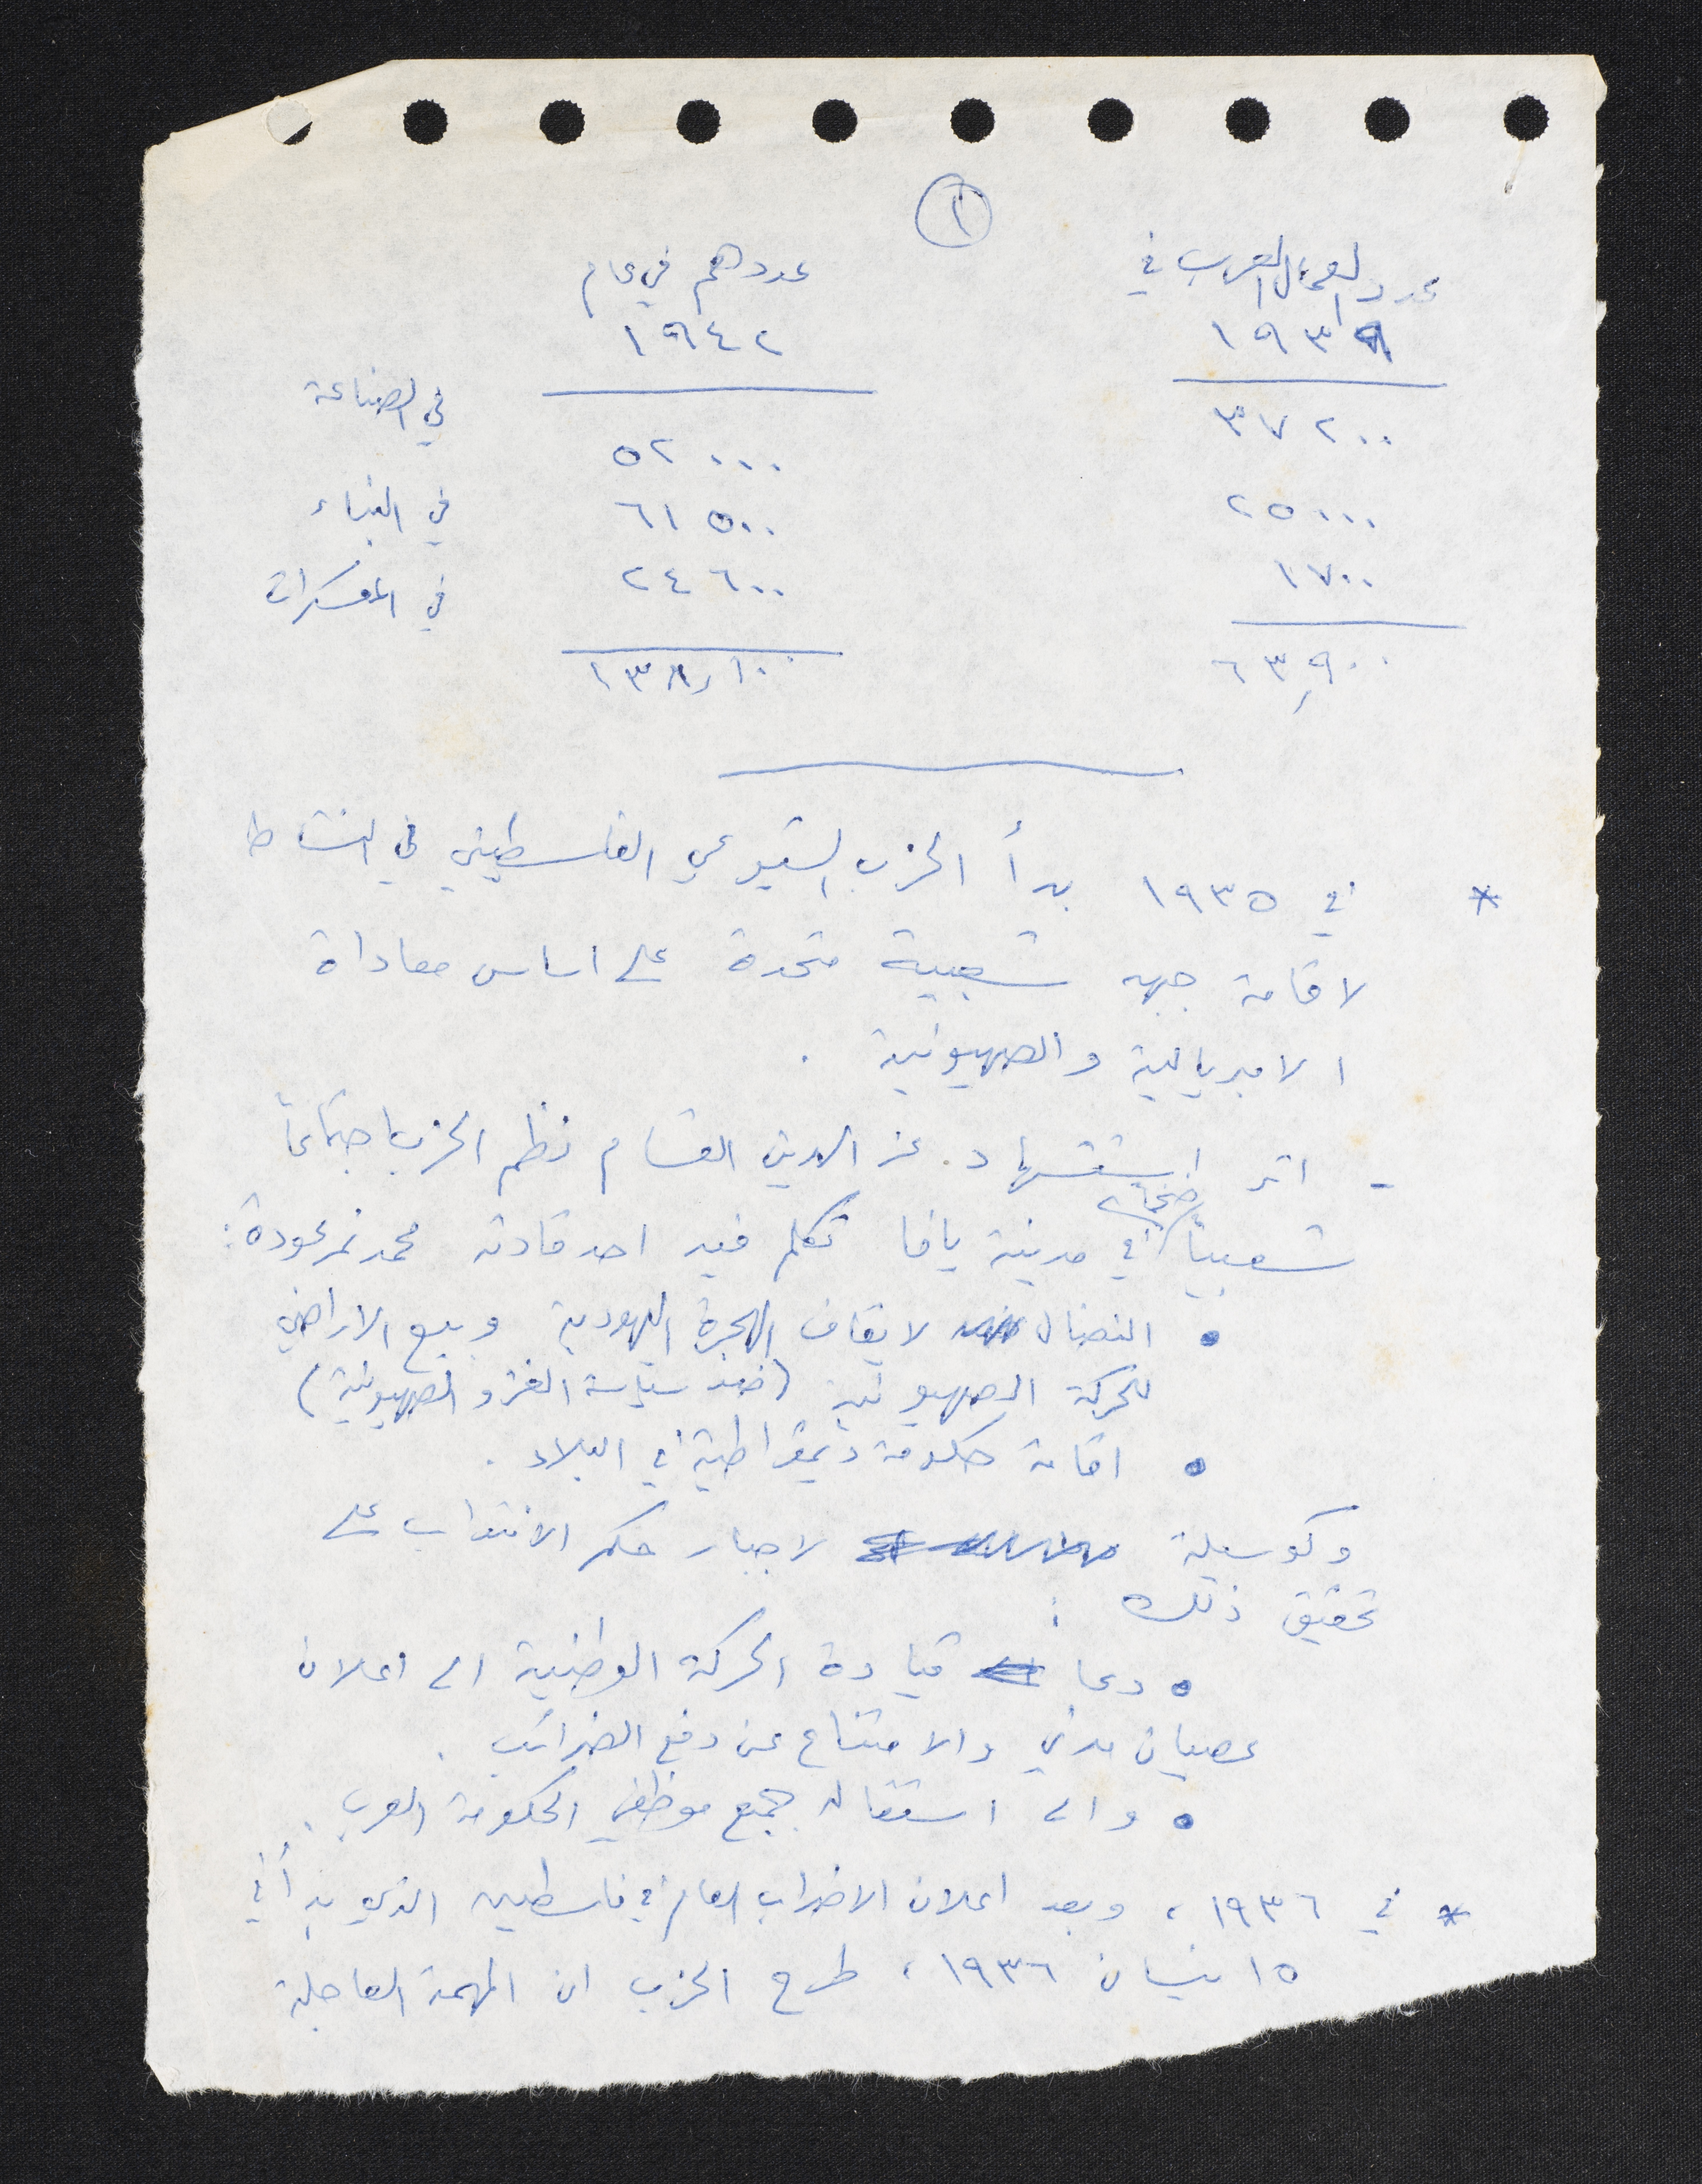 ١
عدد العمال العرب في عددهم في عام
١٩٣٩ ١٩٤٢
٣٧٢٠٠ ٥٢٠٠٠ في الصناعة
٢٥٠٠٠ ٦١٥٠٠ في البناء
١٧٠٠ ٢٤٦٠٠ في المعسكرات
٦٣,٩٠٠ ١٣٨,١٠٠
* في ١٩٣٥ بدأ الحزب الشيوعي الفلسطيني في النشاط
لاقامة جبهه شعبية متحدة على اساس معاداة
الامبريالية والصهيونية .
- اثر استشهاد عز الدين القسام نظم الحزب اجتماعاً
شعبياً ضخماً في مدينة يافا تكلم فيه احد قادته محمد نمر عودة :
• النضال لايقاف الهجرة اليهودية وبيع الاراضي
للحركة الصهيونية (ضد سياسة الغزو الصهيونية)
• اقامة حكومة ديمقراطية في البلاد .
وكوسيلة لاجبار حكم الانتداب على
تحقيق ذلك :
• دعا قيادة الحركة الوطنية الى اعلان
عصيان مدني والامتناع عن دفع الضرائب .
• والى استقالة جميع موظفي الحكومة العرب .
* في ١٩٣٦ ، وبعد اعلان الاضراب العام في فلسطين الذي بدأ في
١٥ نيسان ١٩٣٦ ، طرح الحزب ان المهمة العاجلة